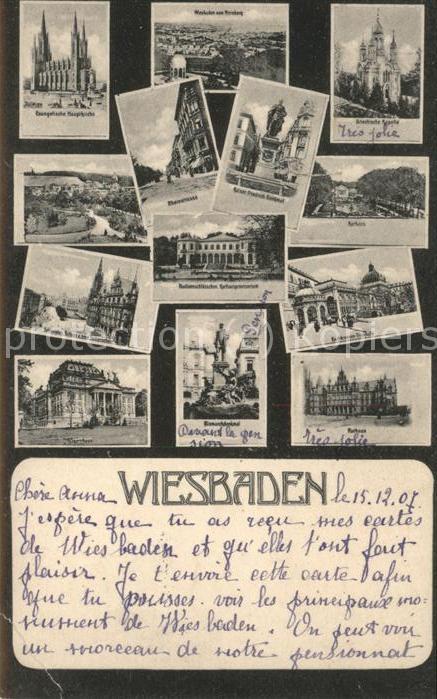 Wiesbaden vom Neroberg
Evangelische Hauptkirche
Griechische Kapelle
Très jolie
Rheinstrasse
Kaiser Friedrich Denkmal
Kurhaus
Paulinenschlösschen, Kurhausprovisorium
Pension
Bismarckdenkmal
Rathaus
Devant la pen
sion
Très jolie
protection copy
WIESBADEN
Chère Anna
le 15.12.07
j'espère que tu as reçu mes cartes
de Wiesbaden et qu'elles t'ont fait
plaisir. Je t'envoie cette carte afin
que tu puisses voir les principaux mo-
nument de Wiesbaden. On peut voir
un morceau de notre pensionnat